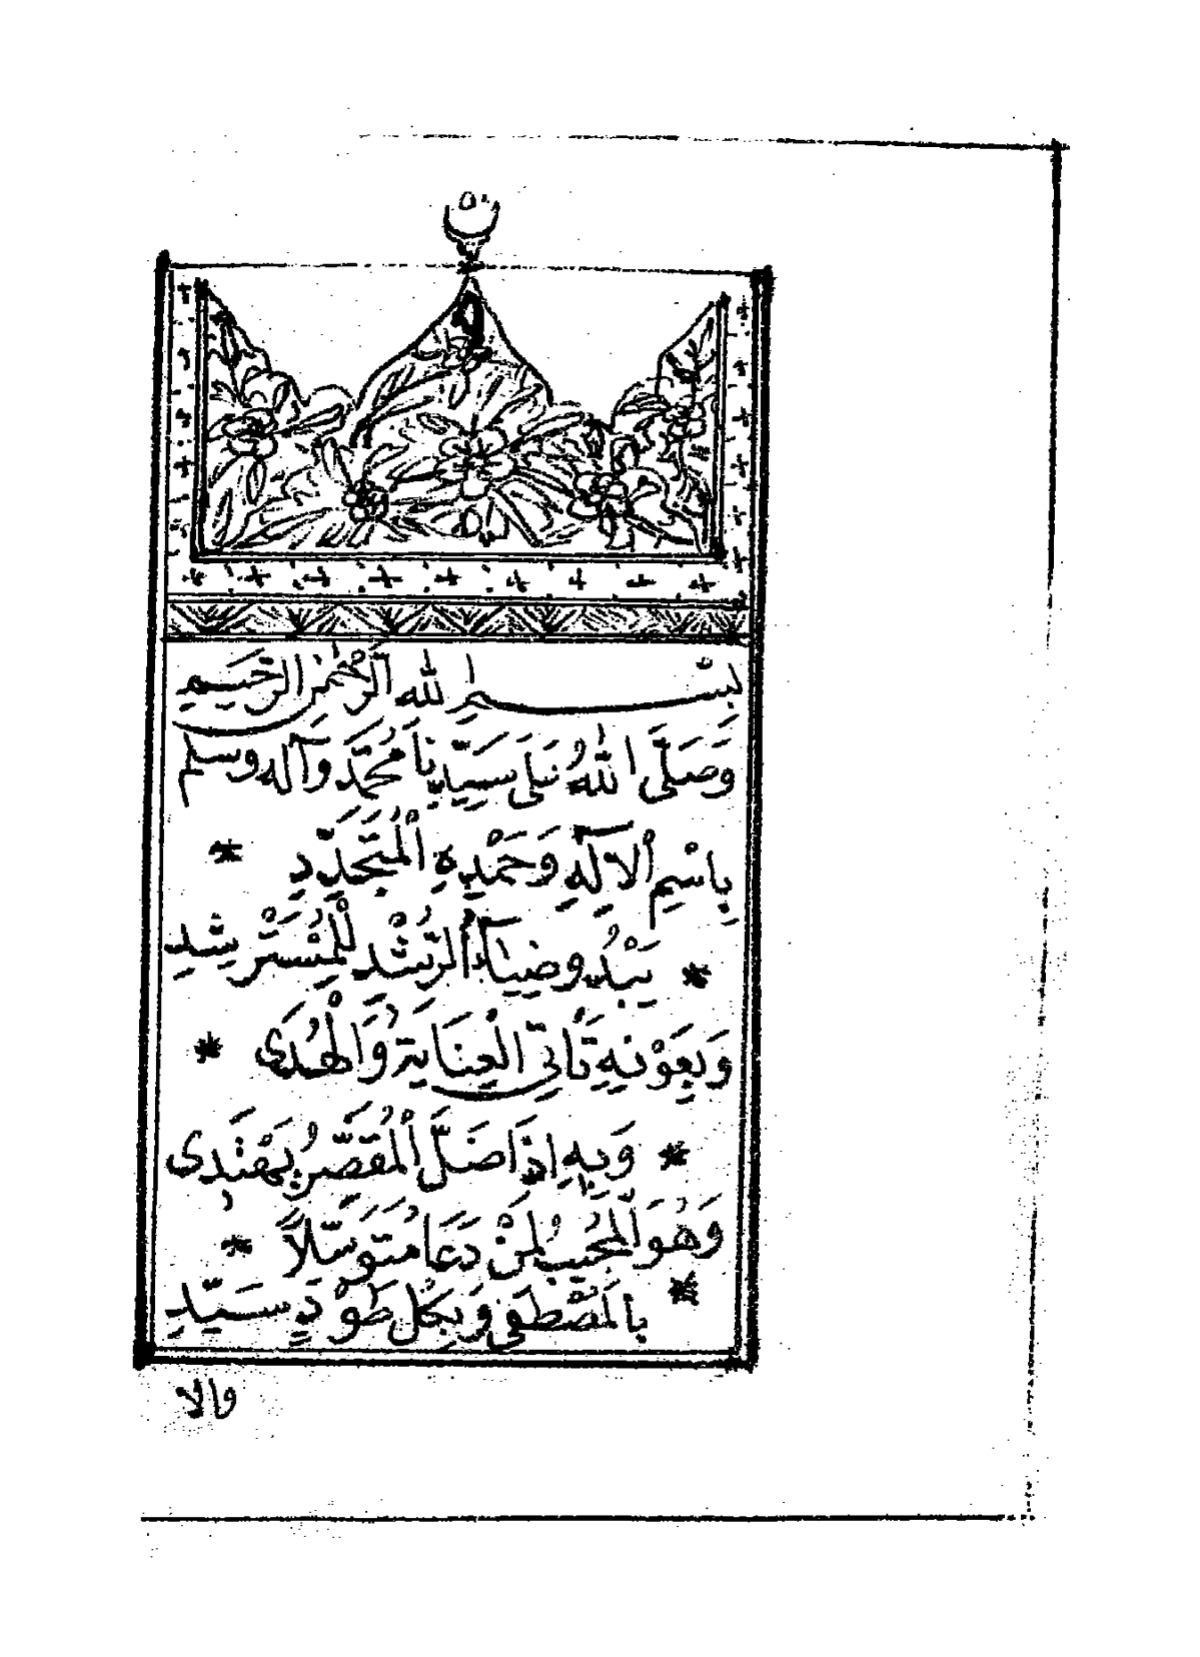 بِسْمِ اللهِ الرَّحْمٰنِ الرَّحِيمِ
وَصَلَّى اللهُ عَلَى سَيِّدِنَا مُحَمَّدٍ وَآلِهِ وسلم
بِاسْمِ الْإِلَهِ وَحَمْدِهِ الْمُتَجَدِّدِ *
* يَبْدُو ضِيَاءُ الرُّشْدِ لِلْمُسْتَرْشِدِ
وَبِعَوْنِهِ تَأْتِي الْعِنَايَةُ وَالْهُدَى *
* وَبِهِ إِذَا ضَلَّ الْمُقَصِّرُ يَهْتَدِى
وَهُوَ الْمُجِيبُ لِمَنْ دَعَا مُتَوَسِّلًا *
* بِالْمُصْطَفَى وَبِكُلِّ طَوْدٍ سَيِّدِ
والا